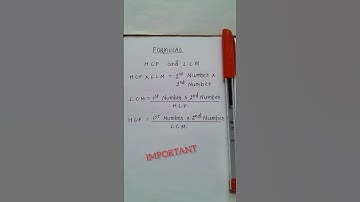 FORMULAS
HCF and LCM
HCF x LCM = 1st Number x
2nd Number
LCM = 1st Number x 2nd Number
HCF
HCF = 1st Number x 2nd Number
LCM
IMPORTANT